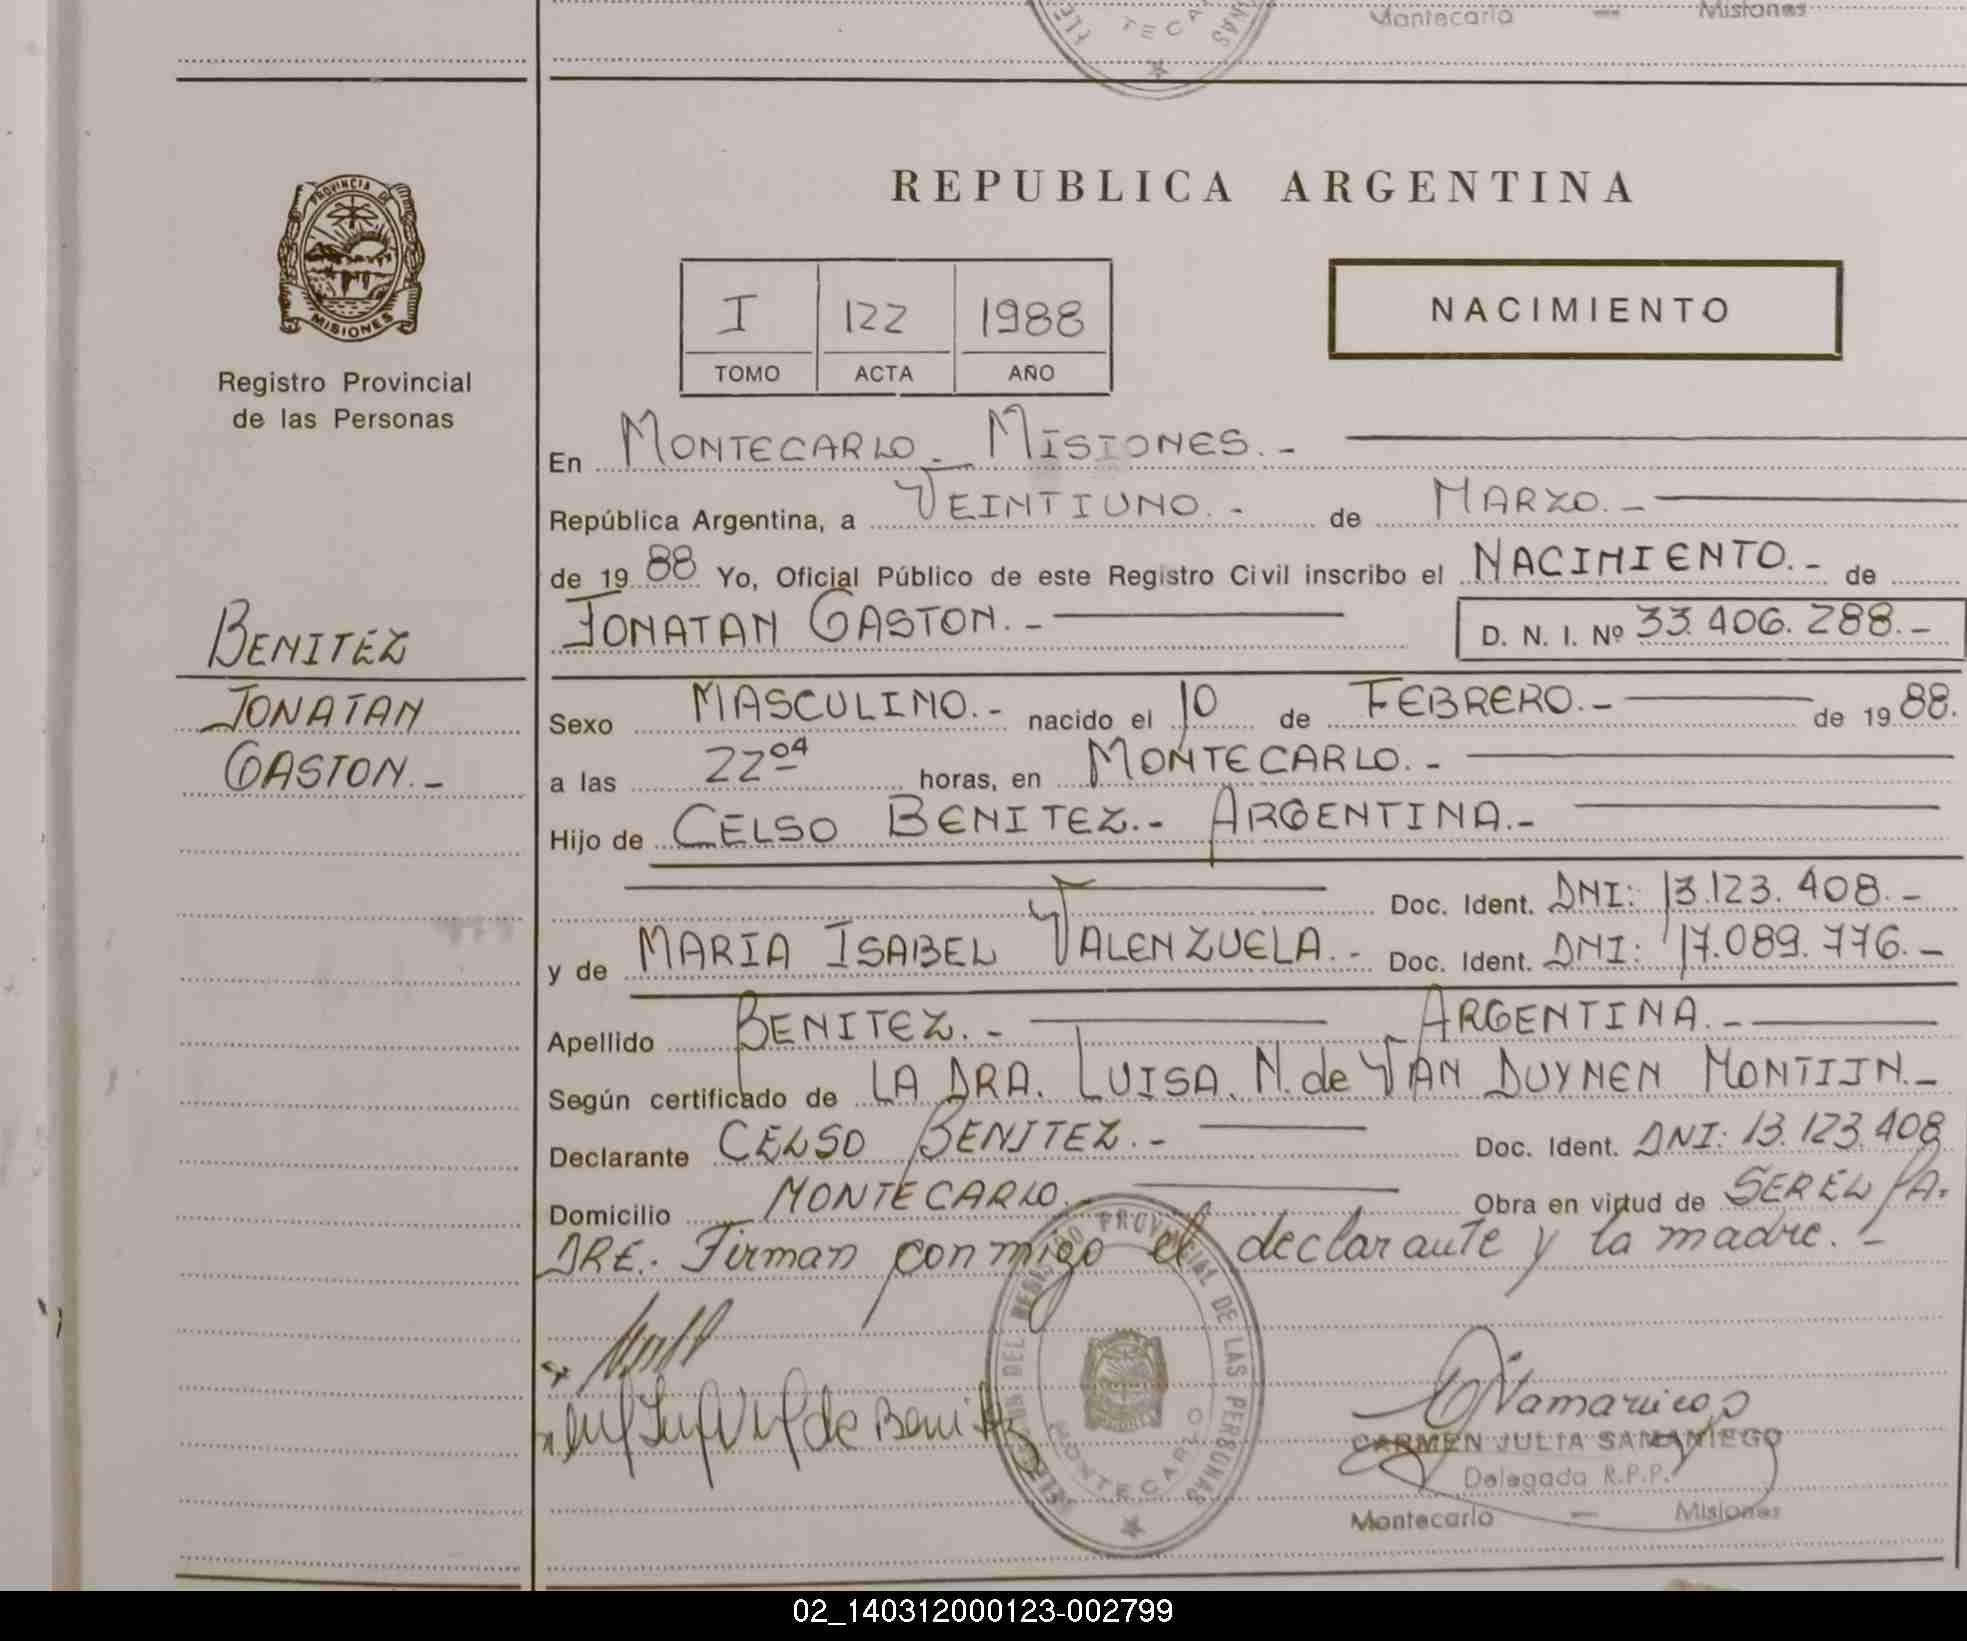 Montecarlo — Misiones
TECA
REPUBLICA ARGENTINA
PROVINCIA DE
MISIONES
Registro Provincial
de las Personas
I 122 1988
TOMO ACTA AÑO
NACIMIENTO
En MONTECARLO - MISIONES.-
República Argentina, a VEINTIUNO.- de MARZO.-
de 19 88 Yo, Oficial Público de este Registro Civil inscribo el NACIMIENTO.- de
JONATAN GASTON.- D. N. I. Nº 33.406.288.-
BENITEZ
JONATAN
GASTON.-
Sexo MASCULINO.- nacido el 10 de FEBRERO.- de 19 88.
a las 22 04 horas, en MONTECARLO.-
Hijo de CELSO BENITEZ.- ARGENTINA.-
Doc. Ident. DNI: 13.123.408.-
y de MARIA ISABEL VALENZUELA.- Doc. Ident. DNI: 17.089.776.-
Apellido BENITEZ.- ARGENTINA.-
Según certificado de LA DRA. LUISA. N. de VAN DUYNEN MONTIJN.-
Declarante CELSO BENITEZ.- Doc. Ident. DNI: 13.123.408
Domicilio MONTECARLO.- Obra en virtud de SER EL PA-
DRE.- Firman conmigo el declarante y la madre.-
DEL REGISTRO PROVINCIAL DE LAS PERSONAS
MONTECARLO
de Benitez
CARMEN JULIA SAMANIEGO
Delegada R.P.P.
Montecarlo — Misiones
02_140312000123-002799